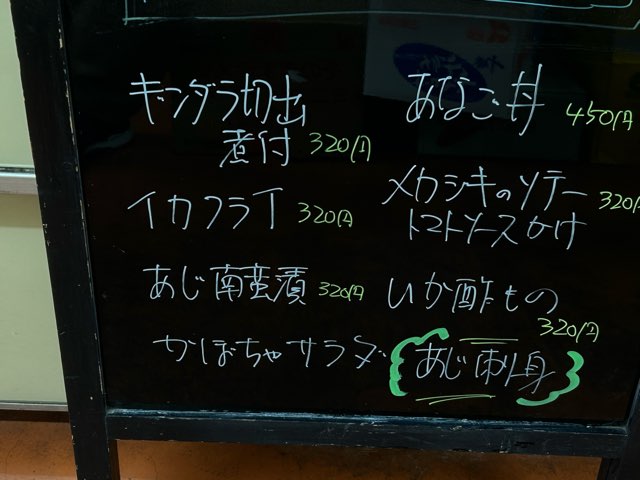 ギンダラ切出
煮付 320円
イカフライ 320円
あじ南蛮漬 320円
かぼちゃサラダ
あなご丼 450円
メカジキのソテー 320円
トマトソースかけ
いか酢もの
320円
あじ刺身